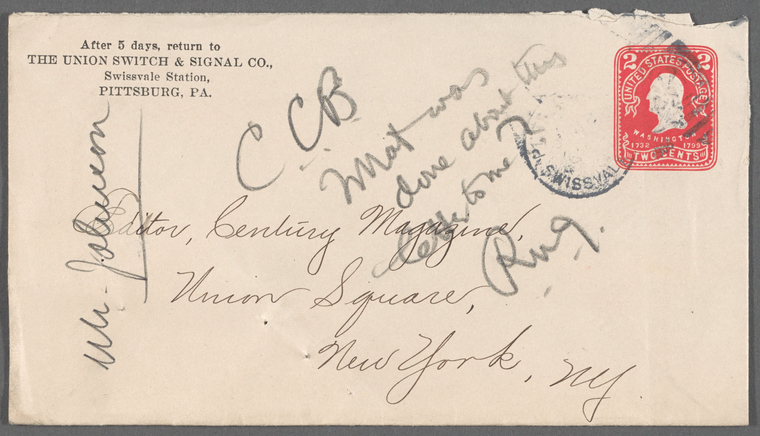 After 5 days, return to
THE UNION SWITCH & SIGNAL CO.,
Swissvale Station,
PITTSBURG, PA.
Mr. Johnson
C CB
What was
done about this
letter to me?
RUG.
Editor, Century Magazine,
Union Square,
New York, NY
SWISSVALE
2 2
UNITED STATES POSTAGE
WASHINGTON
1732 1799
TWO CENTS